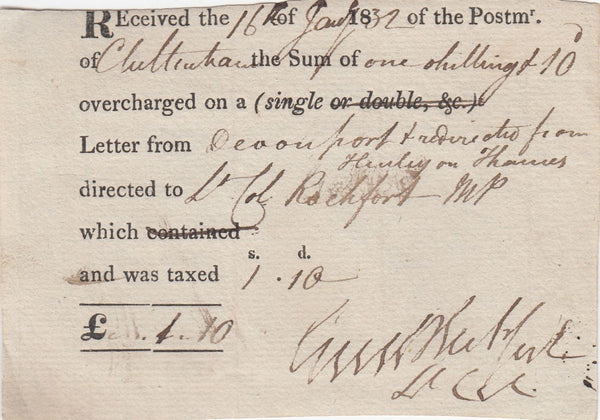 REceived the 16th of Jany 1832 of the Postmr.
of Cheltenham the Sum of one shilling & 10d
overcharged on a (single or double, &c.)
Letter from Devonport & redirected from
Henley on Thames
directed to Lt Col Rochfort MP
which contained
s. d.
and was taxed 1 . 10
£ 1 . 10
Rochfort
Lt Col